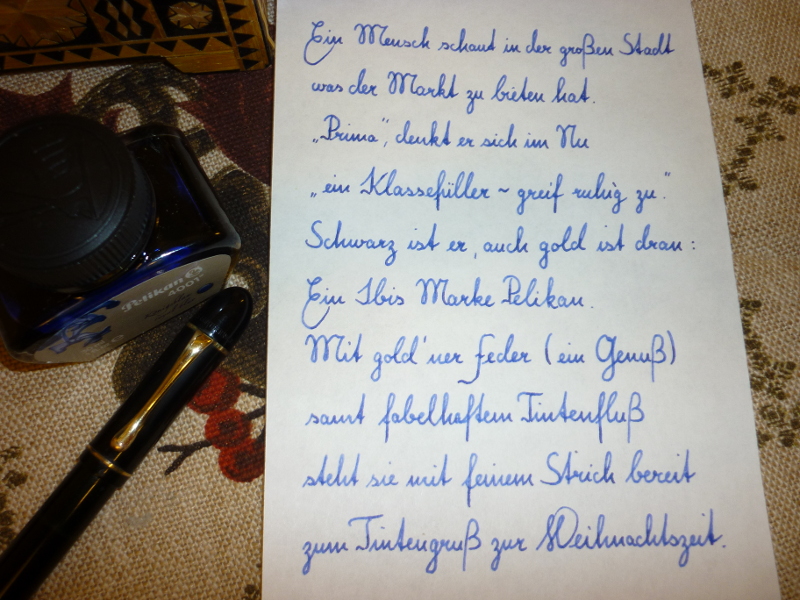 Ein Mensch schaut in der großen Stadt
was der Markt zu bieten hat.
„Prima", denkt er sich im Nu
„ein Klassefüller ~ greif ruhig zu."
Schwarz ist er, auch gold ist dran:
Ein Ibis Marke Pelikan.
Mit gold'ner Feder (ein Genuß)
samt fabelhaftem Tintenfluß
steht sie mit feinem Strich bereit
zum Tintengruß zur Weihnachtszeit.
Pelikan
4001